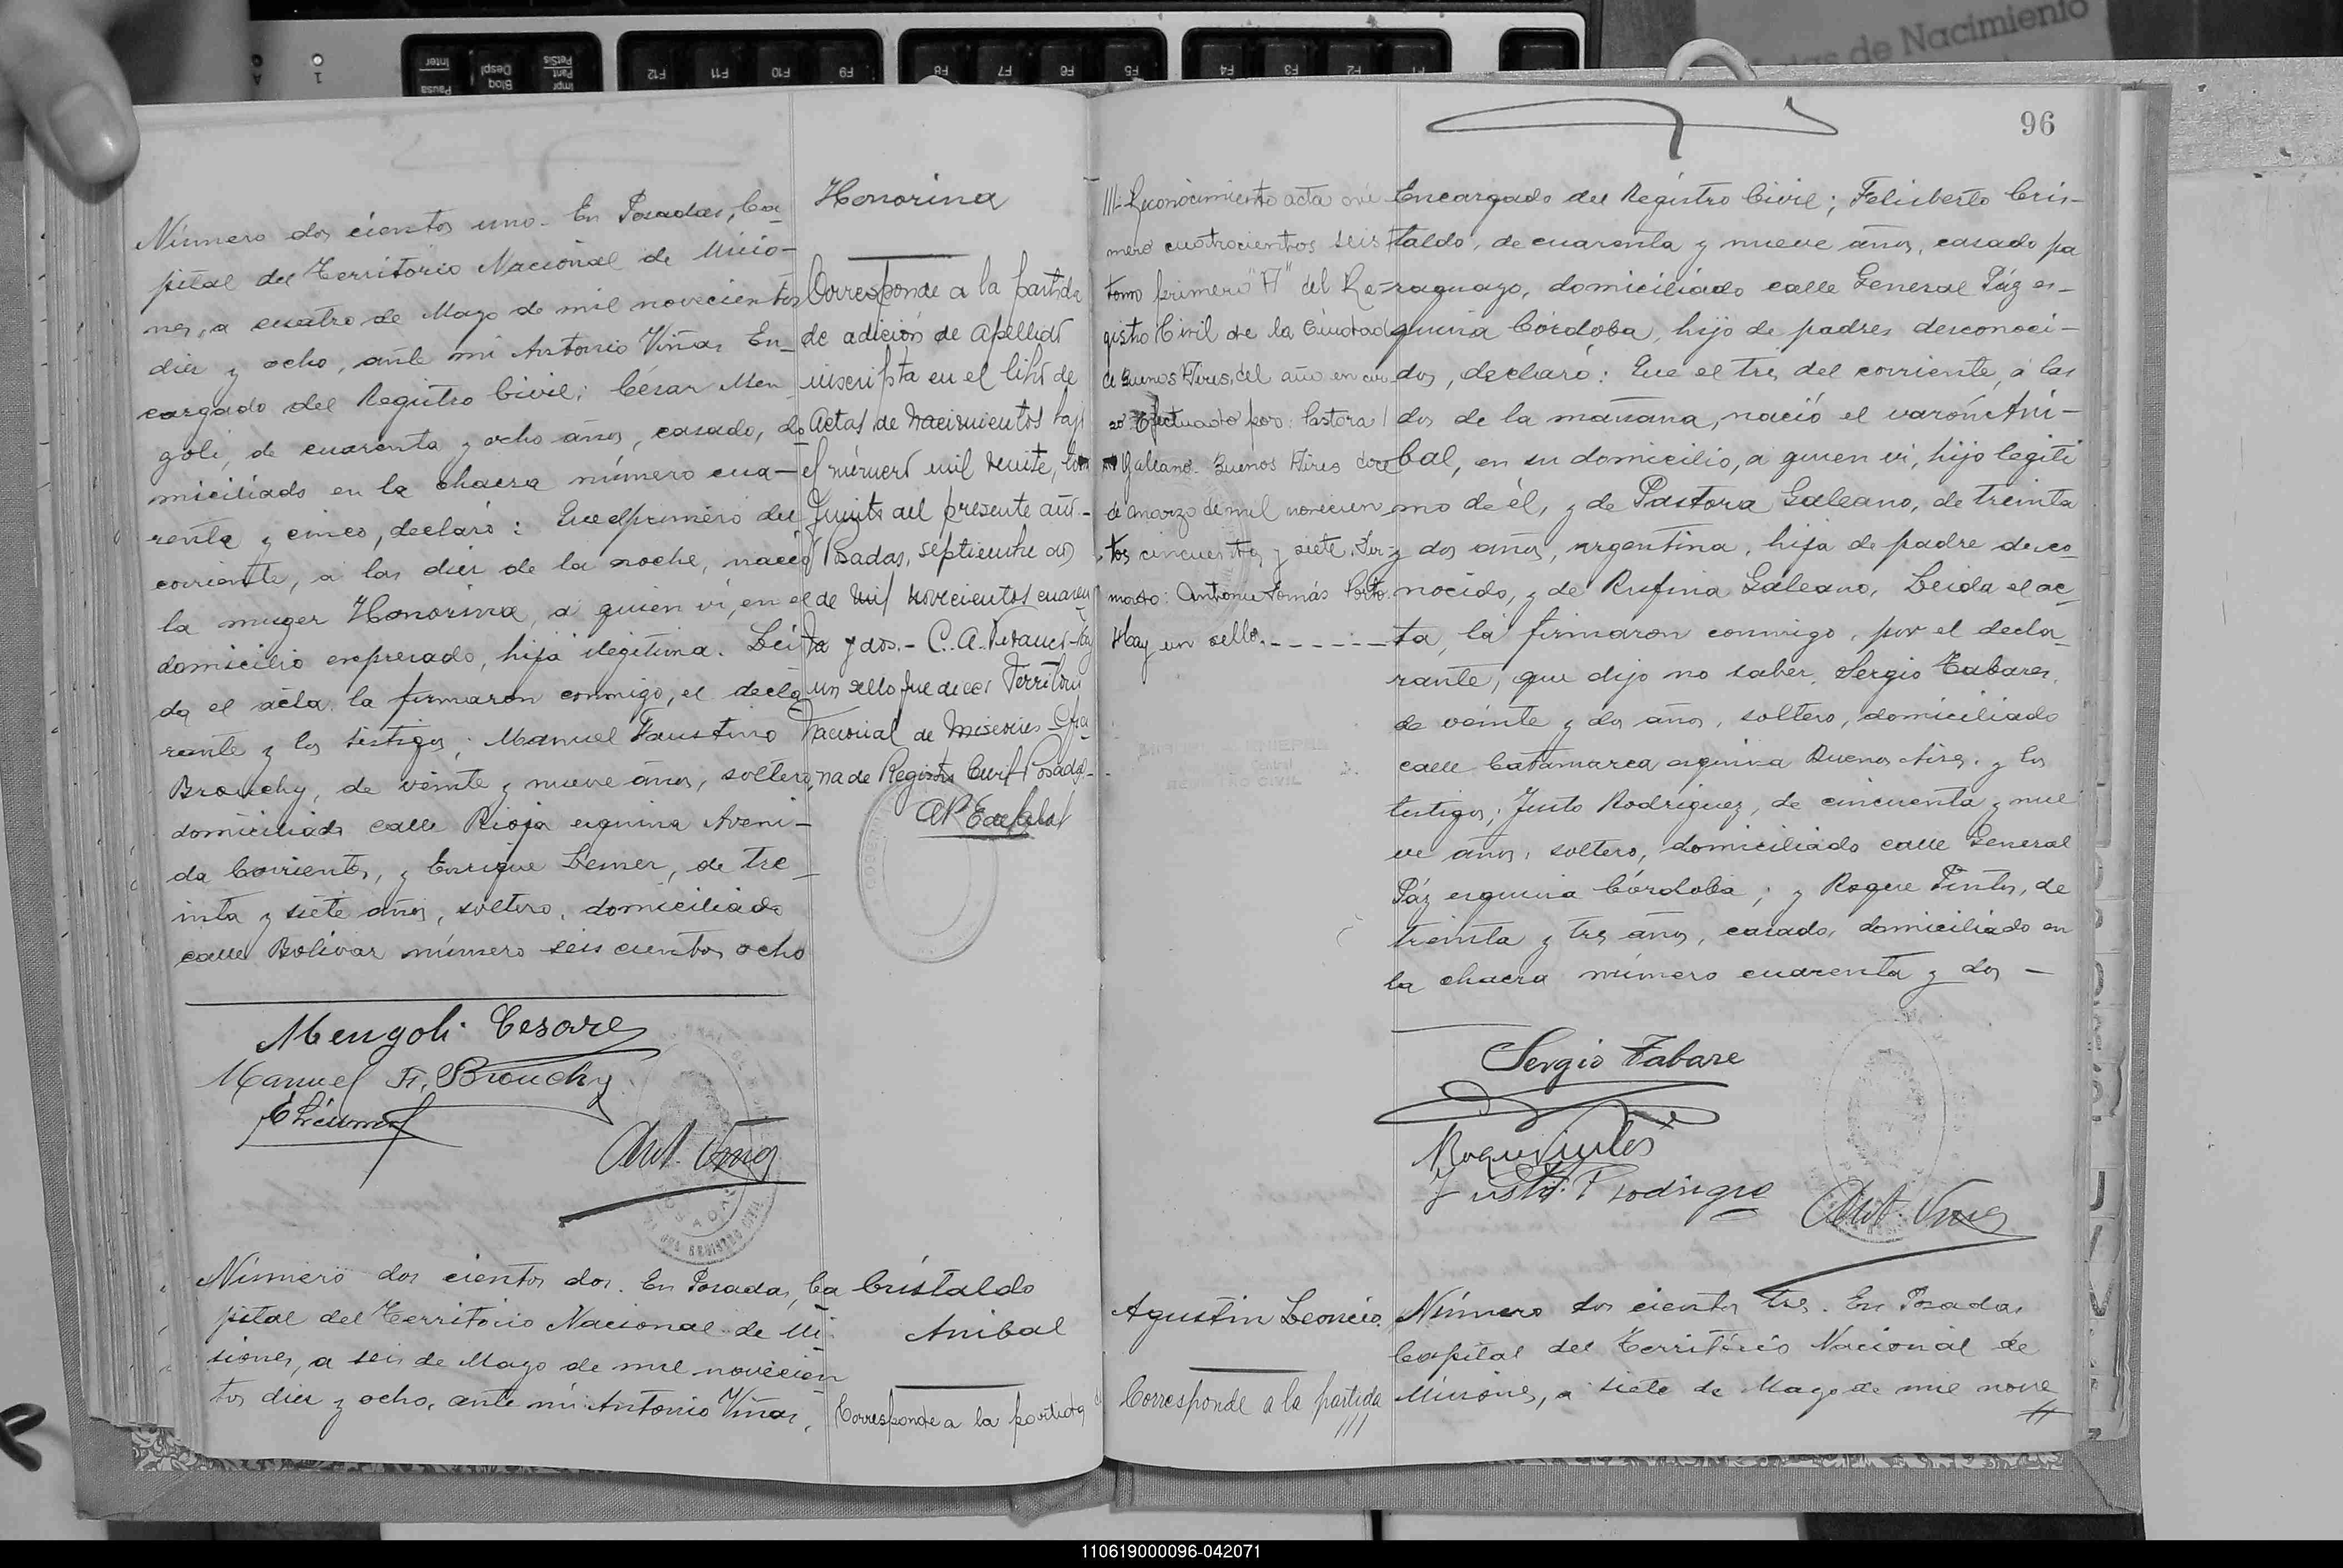 Actas de Nacimiento
96
Número dos cientos uno. En Posadas, Ca
pital del Territorio Nacional de Misio-
nes, a cuatro de Mayo de mil novecientos
diez y ocho, ante mi Antonio Viñas En-
cargado del Registro Civil; César Men
goli, de cuarenta y ocho años, casado, do
miciliado en la chacra número cua-
renta y cinco, declaró: Que el primero del
corriente, a las diez de la noche, nació
la muger Honorina, a quien vi, en el
domicilio expresado, hija ilegitima. Lei
da el acta, la firmaron conmigo, el decla
rante y los testigos; Manuel Faustino
Brouchy, de veinte y nueve años, soltero,
domiciliado calle Rioja esquina Aveni-
da Corrientes, y Enrique Lemer, de tre
inta y siete años, soltero, domiciliado
calle Bolívar número seis cientos ocho
Mengoli Cesare
Manuel F. Brouchy
Ant. Viñas
Honorina
Corresponde a la partida
de adición de apellido
inscripta en el libro de
Actas de Nacimientos bajo
el número mil veinte, tomo
quinto del presente año.-
Posadas, septiembre dos
de mil novecientos cuaren
ta y dos.- C. A. Hay
un sello que dice: Territorio
Nacional de Misiones - Ofici
na de Registro Civil Posadas.-
Número dos cientos dos. En Posadas, Ca
pital del Territorio Nacional de Mi
siones, a seis de Mayo de mil novecien
tos diez y ocho, ante mi Antonio Viñas,
Cristaldo
Anibal
Corresponde a la partida de
///-Reconocimiento acta nú
mero cuatrocientos seis
tomo primero "A" del Re-
gistro Civil de la Ciudad
de Buenos Aires, del año en cur-
so Efectuado por: Pastora
Galeano. Buenos Aires doce
de marzo de mil novecien
tos cincuenta y siete. Fir-
mado: Antonio Tomás Porto.
Hay un sello.-------
Encargado del Registro Civil; Felisberto Cris-
taldo, de cuarenta y nueve años, casado pa
raguayo, domiciliado calle General Páz es-
quina Córdoba, hijo de padres desconoci-
dos, declaró: Que el tres del corriente, a las
dos de la mañana, nació el varón Ani-
bal, en su domicilio, a quien vi, hijo legiti
mo de él, y de Pastora Galeano, de treinta
y dos años, argentina, hija de padre desco-
nocido, y de Rufina Galeano, Leida el ac-
ta, la firmaron conmigo, por el decla-
rante, que dijo no saber, Sergio Tabares,
de veinte y dos años, soltero, domiciliado
calle Catamarca esquina Buenos Aires, y los
testigos; Justo Rodriguez, de cincuenta y nue
ve años, soltero, domiciliado calle General
Páz esquina Córdoba; y Roque Pintos, de
treinta y tres años, casado, domiciliado en
la chacra número cuarenta y dos -
Sergio Tabare
Roque Pintos
Justo Rodrigue
Ant. Viñas
Agustin Leoncio.
Corresponde a la partida
///
Número dos cientos tres. En Posadas
Capital del Territorio Nacional de
Misiones, a siete de Mayo de mil nove
110619000096-042071